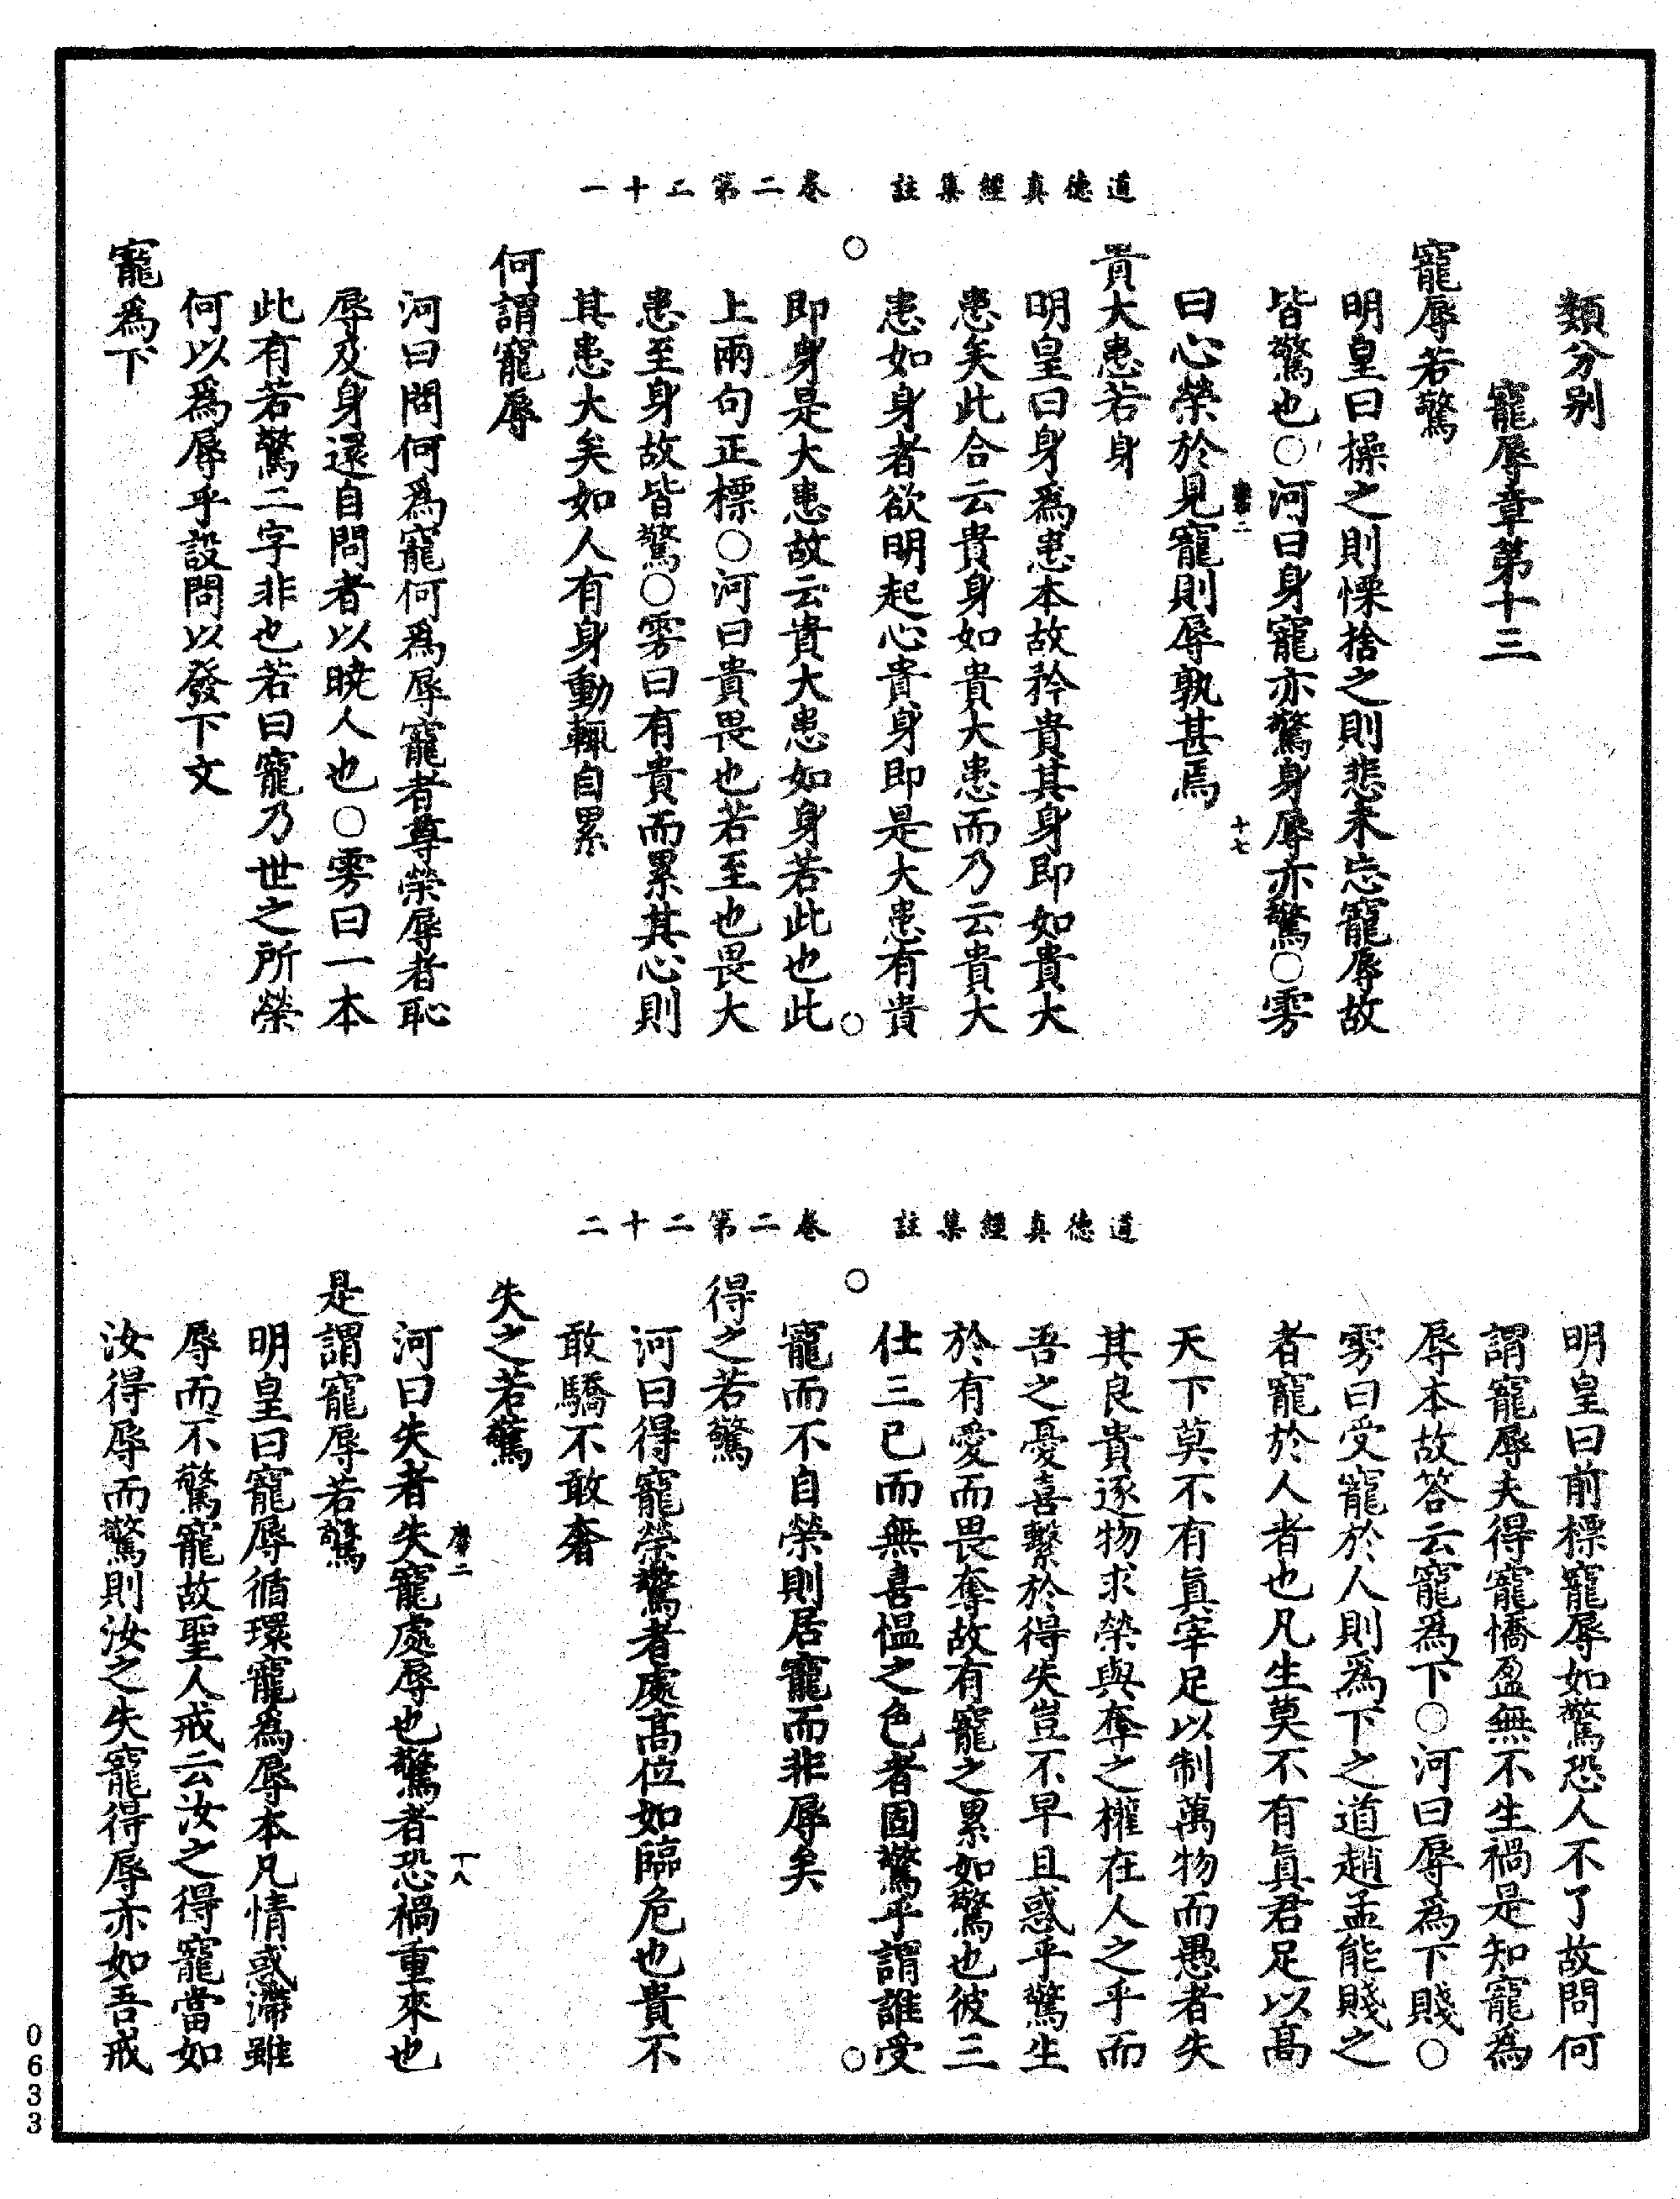 道德真經集註　卷二第二十一
類分别
寵辱章第十三
寵辱若驚
明皇曰操之則慄捨之則悲未忘寵辱故
皆驚也○河曰身寵亦驚身辱亦驚○雱
十七
曰心榮於見寵則辱孰甚焉
貴大患若身
明皇曰身爲患本故矜貴其身即如貴大
患矣此合云貴身如貴大患而乃云貴大
患如身者欲明起心貴身即是大患有貴
即身是大患故云貴大患如身若此也此
上兩句正標○河曰貴畏也若至也畏大
患至身故皆驚○雱曰有貴而累其心則
其患大矣如人有身動輒自累
何謂寵辱
河曰問何爲寵何爲辱寵者尊榮辱者恥
辱及身還自問者以曉人也○雱曰一本
此有若驚二字非也若曰寵乃世之所榮
何以爲辱乎設問以發下文
寵爲下
道德真經集註　卷二第二十二
明皇曰前標寵辱如驚恐人不了故問何
謂寵辱夫得寵憍盈無不生禍是知寵爲
辱本故答云寵爲下○河曰辱爲下賤○
雱曰受寵於人則爲下之道趙孟能賤之
者寵於人者也凡生莫不有眞君足以高
天下莫不有眞宰足以制萬物而愚者失
其良貴逐物求榮與奪之權在人之乎而
吾之憂喜繫於得失豈不早且惑乎驚生
於有愛而畏奪故有寵之累如驚也彼三
仕三已而無喜愠之色者固驚乎謂誰受
寵而不自榮則居寵而非辱矣
得之若驚
河曰得寵榮驚者處高位如臨危也貴不
敢驕不敢奢
失之若驚
十八
河曰失者失寵處辱也驚者恐禍重來也
是謂寵辱若驚
明皇曰寵辱循環寵爲辱本凡情惑滯雖
辱而不驚寵故聖人戒云汝之得寵當如
汝得辱而驚則汝之失寵得辱亦如吾戒
0633